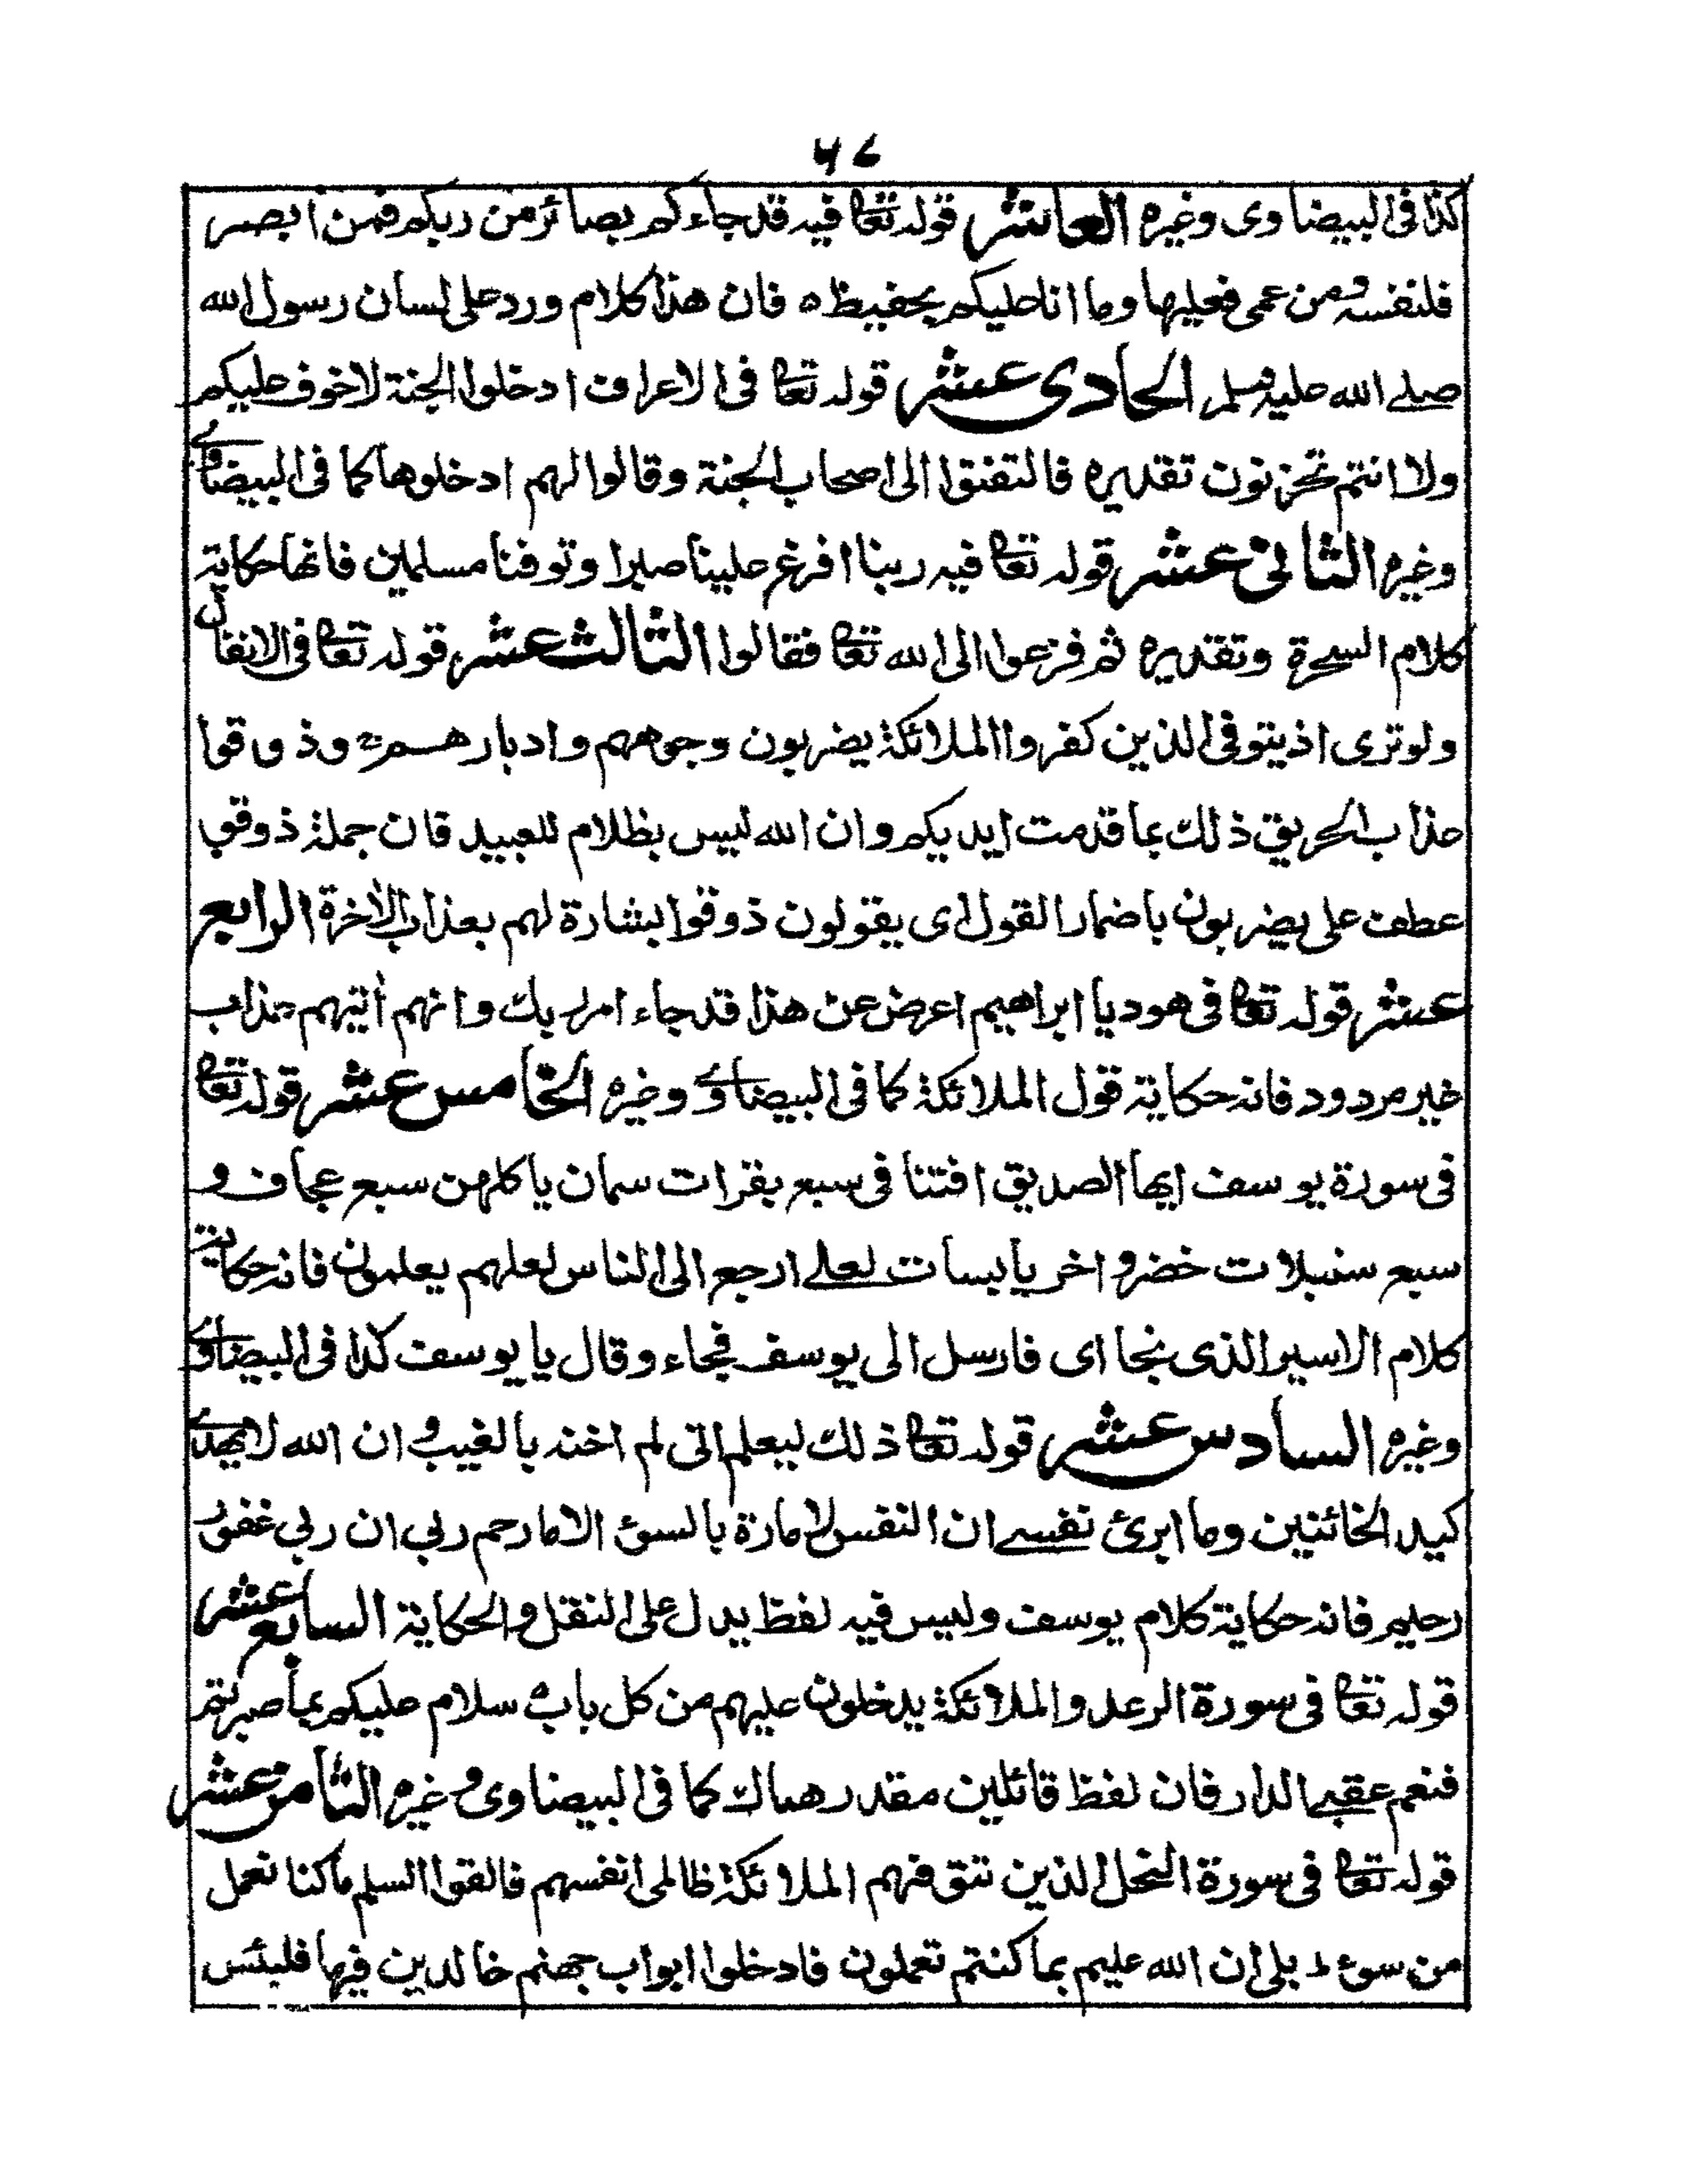 ٤٧
كذا فی البيضاوی وغيره العاشر قوله تعا فيه قد جاءكم بصائر من ربكم فمن ابصر
فلنفسه ومن عمی فعليها وما انا عليكم بحفيظ ه فان هذا كلام ورد علی لسان رسول الله
صلے الله عليه وسلم الحادی عشر قوله تعا فی الاعراف ادخلوا الجنة لا خوف عليكم
ولا انتم تحزنون تقديره فالتفتوا الی اصحاب الجنة وقالوا لهم ادخلوها كما فی البيضاوے
وغيره الثانی عشر قوله تعا فيه ربنا افرغ علينا صبرا وتوفنا مسلمين فانها حكاية
كلام السحرة وتقديره ثم فزعوا الی الله تعا فقالوا الثالث عشر قوله تعا فی الانفال
ولو تری اذ يتوفی الذين كفروا الملائكة يضربون وجوههم وادبارهم وذوقوا
عذاب الحريق ذلك بما قدمت ايديكم وان الله ليس بظلام للعبيد فان جملة ذوقوا
عطف علی يضربون باضمار القول ای يقولون ذوقوا بشارة لهم بعذاب الاخرة الرابع
عشر قوله تعا فی هود يا ابراهيم اعرض عن هذا قد جاء امر ربك وانهم أتيهم عذاب
غير مردود فانه حكاية قول الملائكة كما فی البيضاوے وغيره الخامس عشر قوله تعا
فی سورة يوسف ايها الصديق افتنا فی سبع بقرات سمان ياكلهن سبع عجاف و
سبع سنبلات خضر واخر يابسات لعلے ارجع الی الناس لعلهم يعلمون فانه حكاية
كلام الاسير الذی نجا ای فارسل الی يوسف فجاء وقال يا يوسف كذا فی البيضاوے
وغيره السادس عشر قوله تعا ذلك ليعلم انی لم اخنه بالغيب وان الله لا يهدے
كيد الخائنين وما ابرئ نفسے ان النفس لامارة بالسوئ الا ما رحم ربی ان ربی غفور
رحيم فانه حكاية كلام يوسف وليس فيه لفظ يدل علی النقل والحكاية السابع عشر
قوله تعا فی سورة الرعد والملائكة يدخلون عليهم من كل باب سلام عليكم بما صبرتم
فنعم عقبے الدار فان لفظ قائلين مقدر هناك كما فی البيضاوی وغيره الثامن عشر
قوله تعا فی سورة النحل الذين تتوفهم الملائكة ظالمی انفسهم فالقوا السلم ما كنا نعمل
من سوء ط بلی ان الله عليم بما كنتم تعملون فادخلوا ابواب جهنم خالدين فيها فلبئس